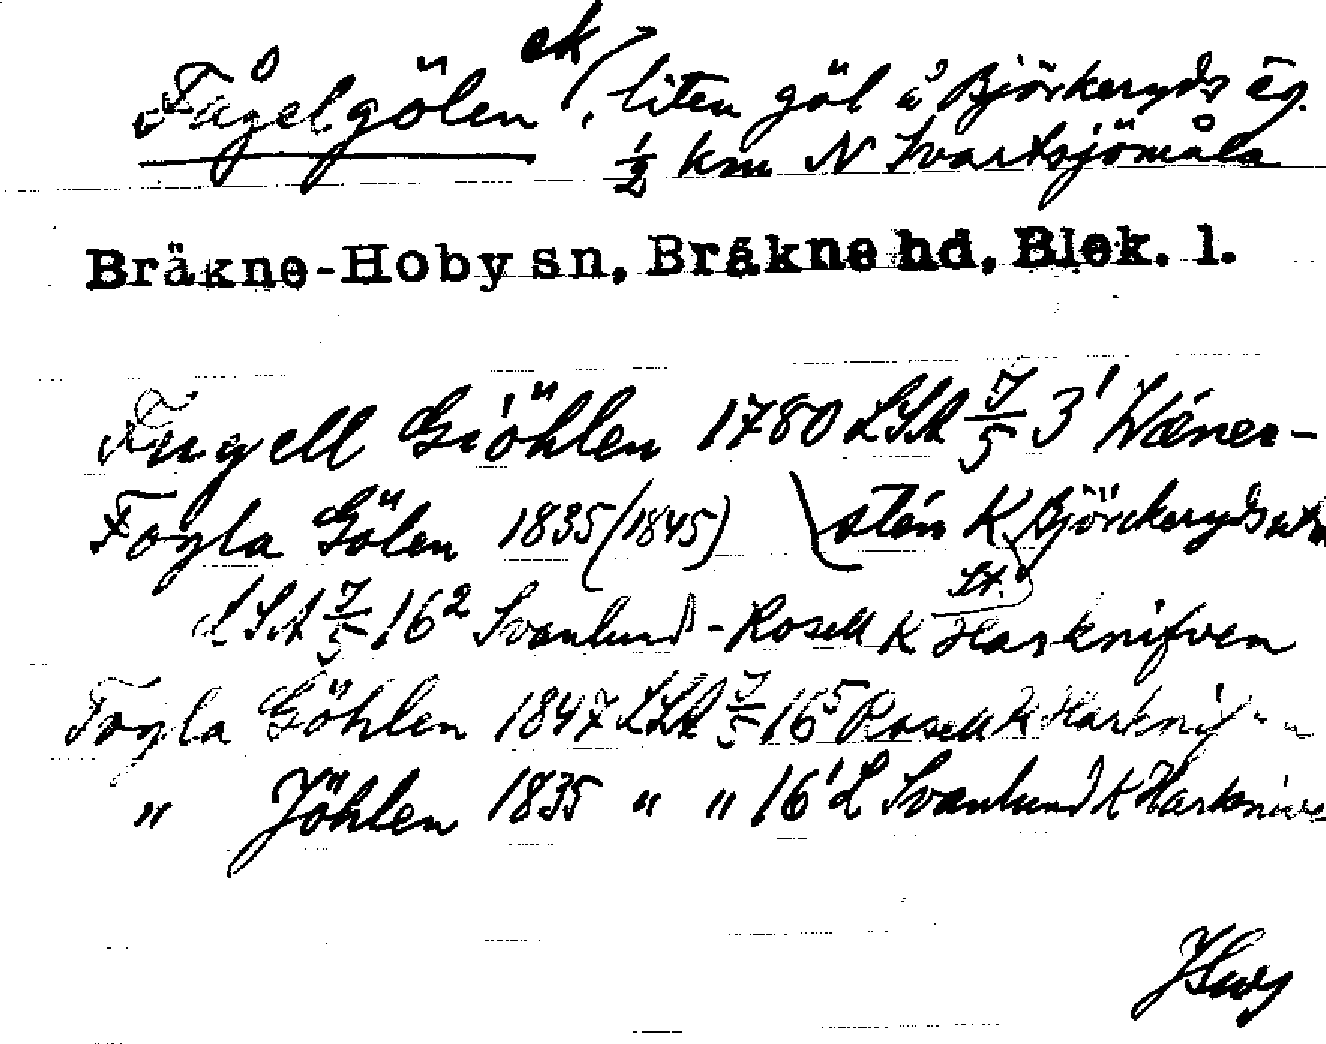 Fågelgölen ek, liten göl å Björkeryds äg.
1/2 km N Svartsjömåla
Bräkne-Hoby sn, Bräkne hd, Blek. l.
Fugell Giöhlen 1780 LSA 7/5 3¹ Wéner-
Fogla Gölen 1835 (1845) stén K Björckeryds
LSA 7/5 16² Svanlund - Rosell K St. Harknifven
Fogla Göhlen 1847 LSA 7/5 16⁵ Rosell K
" Jöhlen 1835 " " 16¹ L Svanlund K Harknive